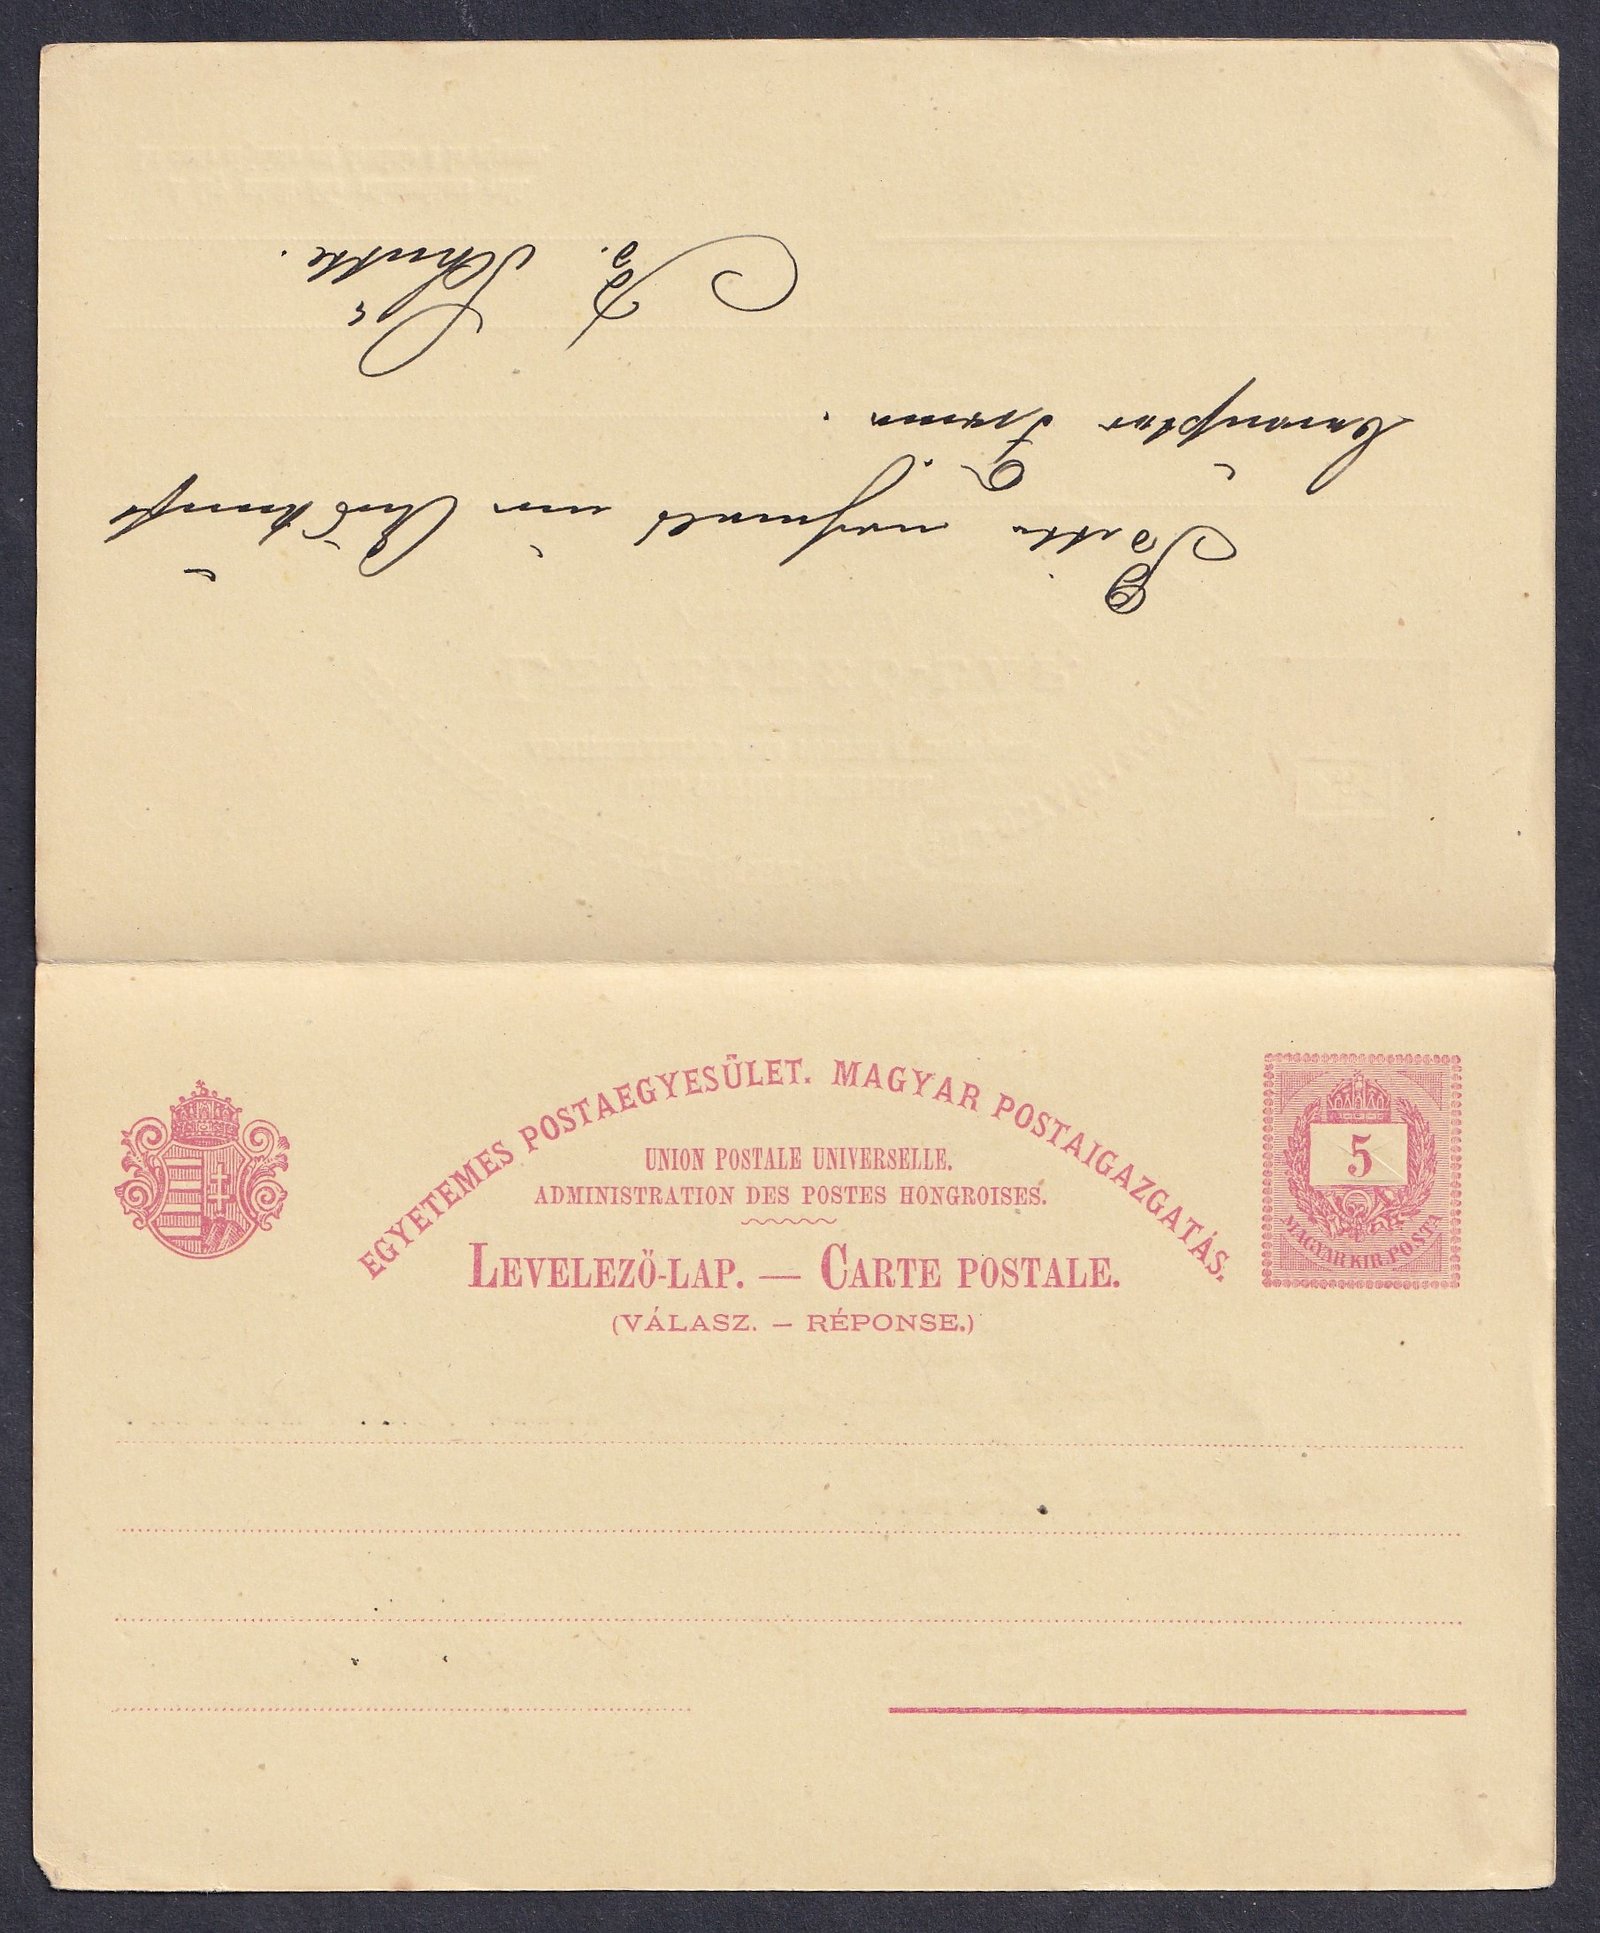 Bitte nochmals um Auskunft
F. G. Schultze.
EGYETEMES POSTAEGYESÜLET. MAGYAR POSTAIGAZGATÁS.
UNION POSTALE UNIVERSELLE.
ADMINISTRATION DES POSTES HONGROISES.
LEVELEZŐ-LAP. — CARTE POSTALE.
(VÁLASZ. — RÉPONSE.)
5
MAGYAR KIR. POSTA